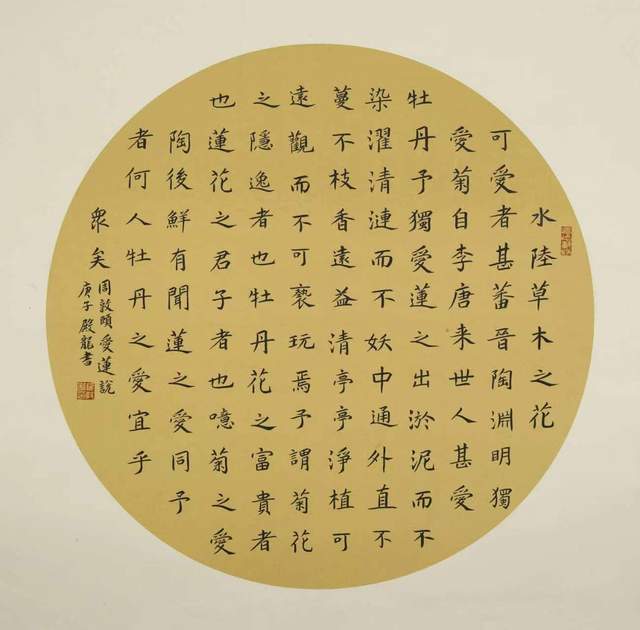 水陸草木之花
可愛者甚蕃晉陶淵明獨
愛菊自李唐来世人甚愛
牡丹予獨愛蓮之出淤泥而不
染濯清漣而不妖中通外直不
蔓不枝香遠益清亭亭淨植可
遠觀而不可褻玩焉予謂菊花
之隱逸者也牡丹花之富貴者
也蓮花之君子者也噫菊之愛
陶後鮮有聞蓮之愛同予
者何人牡丹之愛宜乎
眾矣
周敦頤愛蓮說
庚子殿龍書